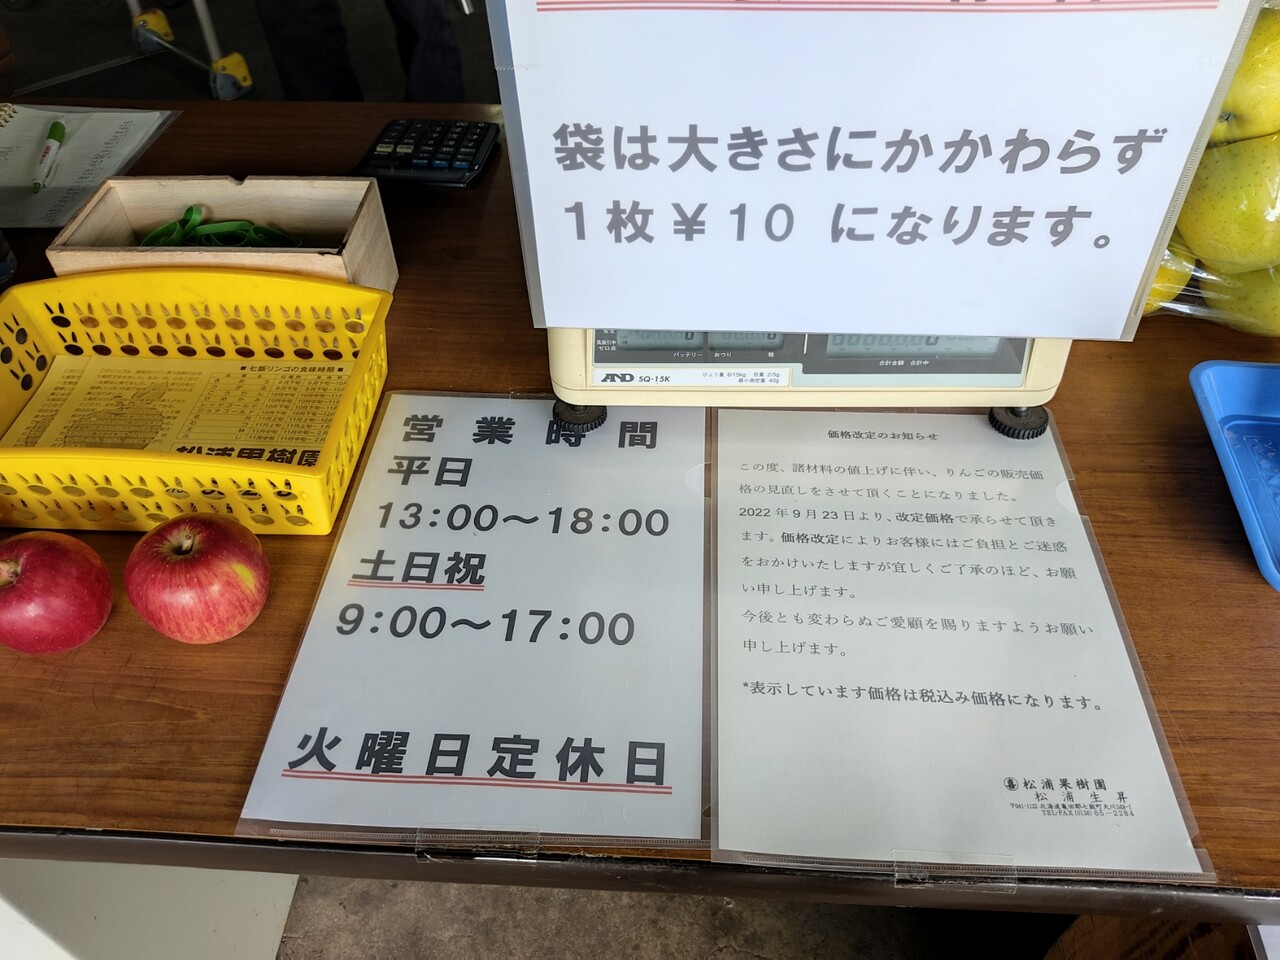 袋は大きさにかかわらず
1枚￥10 になります。
バッテリー おつり
合計金額 合計中
AND SQ-15K
ひょう量 6/15kg 目量 2/5g
最小測定量 40g
■七飯リンゴの食味時期■
松浦果樹園
営業時間
平日
13:00～18:00
土日祝
9:00～17:00
火曜日定休日
価格改定のお知らせ
この度、諸材料の値上げに伴い、りんごの販売価
格の見直しをさせて頂くことになりました。
2022年9月23日より、改定価格で承らせて頂き
ます。価格改定によりお客様にはご負担とご迷惑
をおかけいたしますが宜しくご了承のほど、お願
い申し上げます。
今後とも変わらぬご愛顧を賜りますようお願い
申し上げます。
*表示しています価格は税込み価格になります。
松浦果樹園
松浦生昇
〒041-1122 北海道亀田郡七飯町大川349-1
TEL/FAX (0138) 65-2284